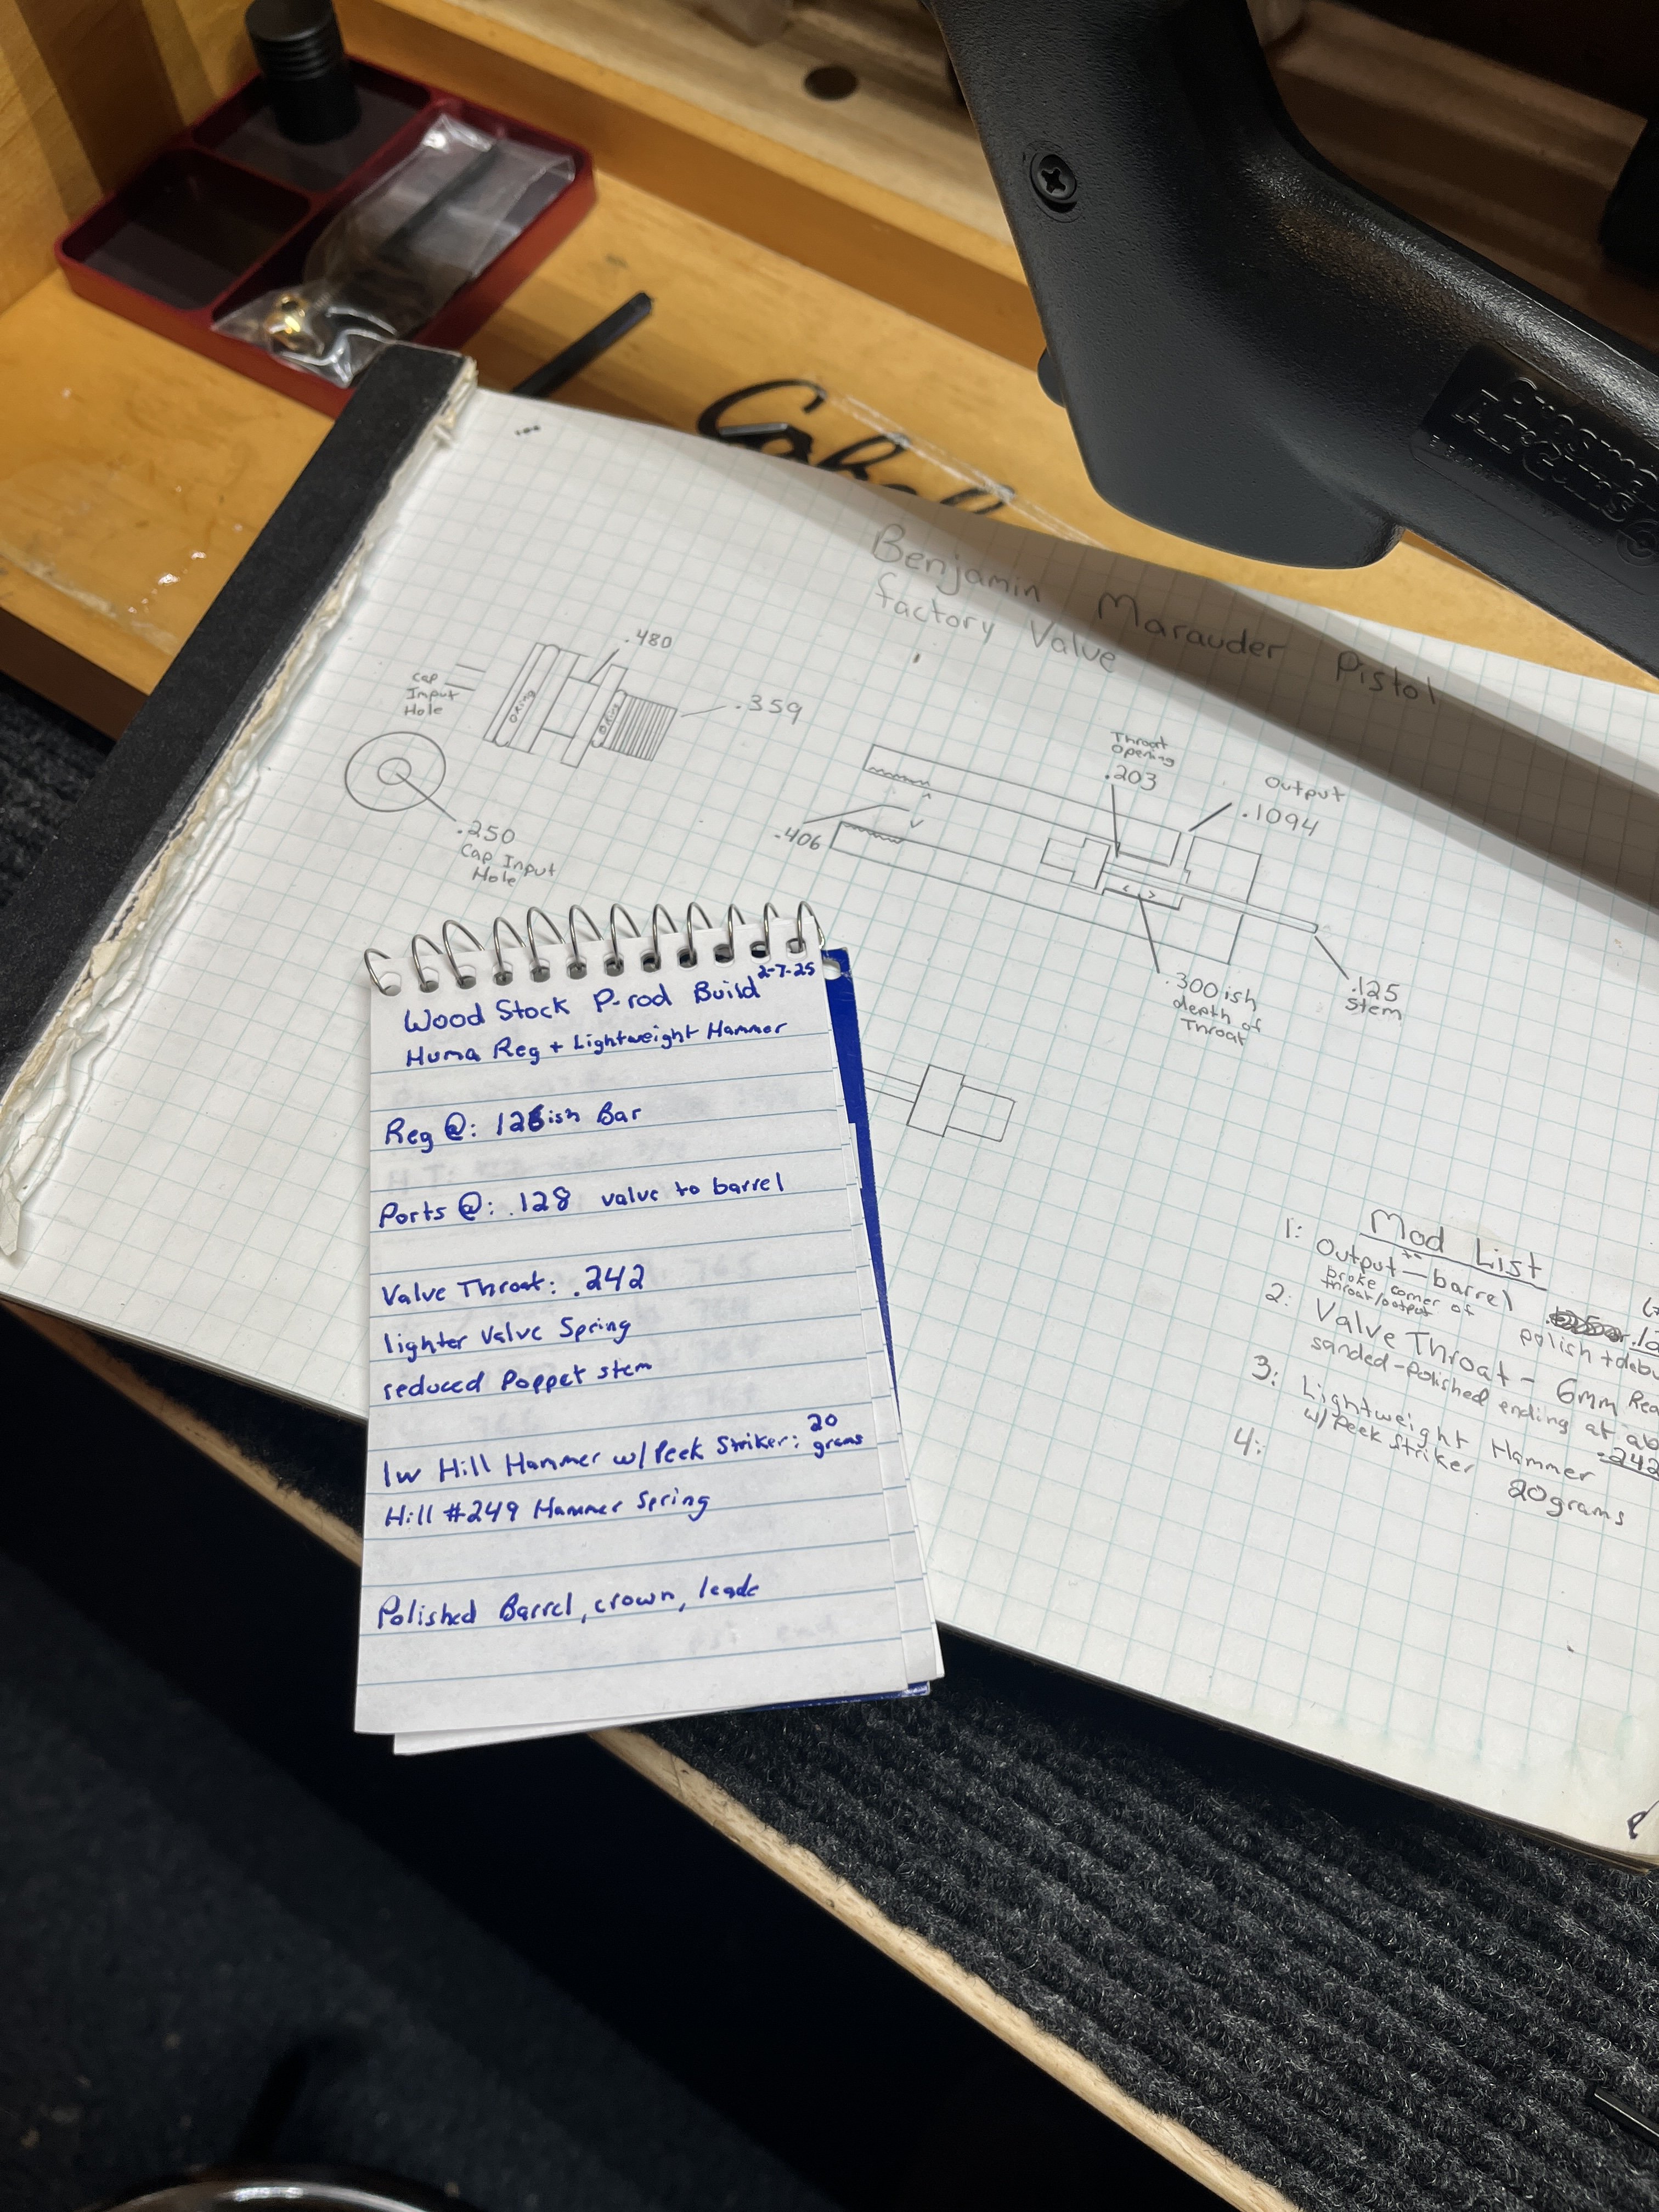 Crosman
AirGuns
Cabel
Benjamin Marauder Pistol
factory Valve
.480
cap
Input
Hole
O-Ring
O-Ring
.359
.250
Cap Input
Hole
Throat
Opening
.203
Output
.1094
.406
.300 ish
depth of
Throat
.125
Stem
Wood Stock P-rod Build 2-7-25
Huma Reg + Lightweight Hammer
Reg @: ish Bar
Ports @: .128 valve to barrel
Valve Throat: .242
lighter Valve Spring
reduced Poppet stem
lw Hill Hammer w/ Peek Striker: 20 grams
Hill #249 Hammer Spring
Polished Barrel, crown, leade
Mod List
1: Output barrel
broke corner of
throat/output
polish + debu
2: Valve Throat - 6mm Rea
sanded-polished ending at ab
.242
3: Lightweight Hammer
w/ Peek Striker 20 grams
4: